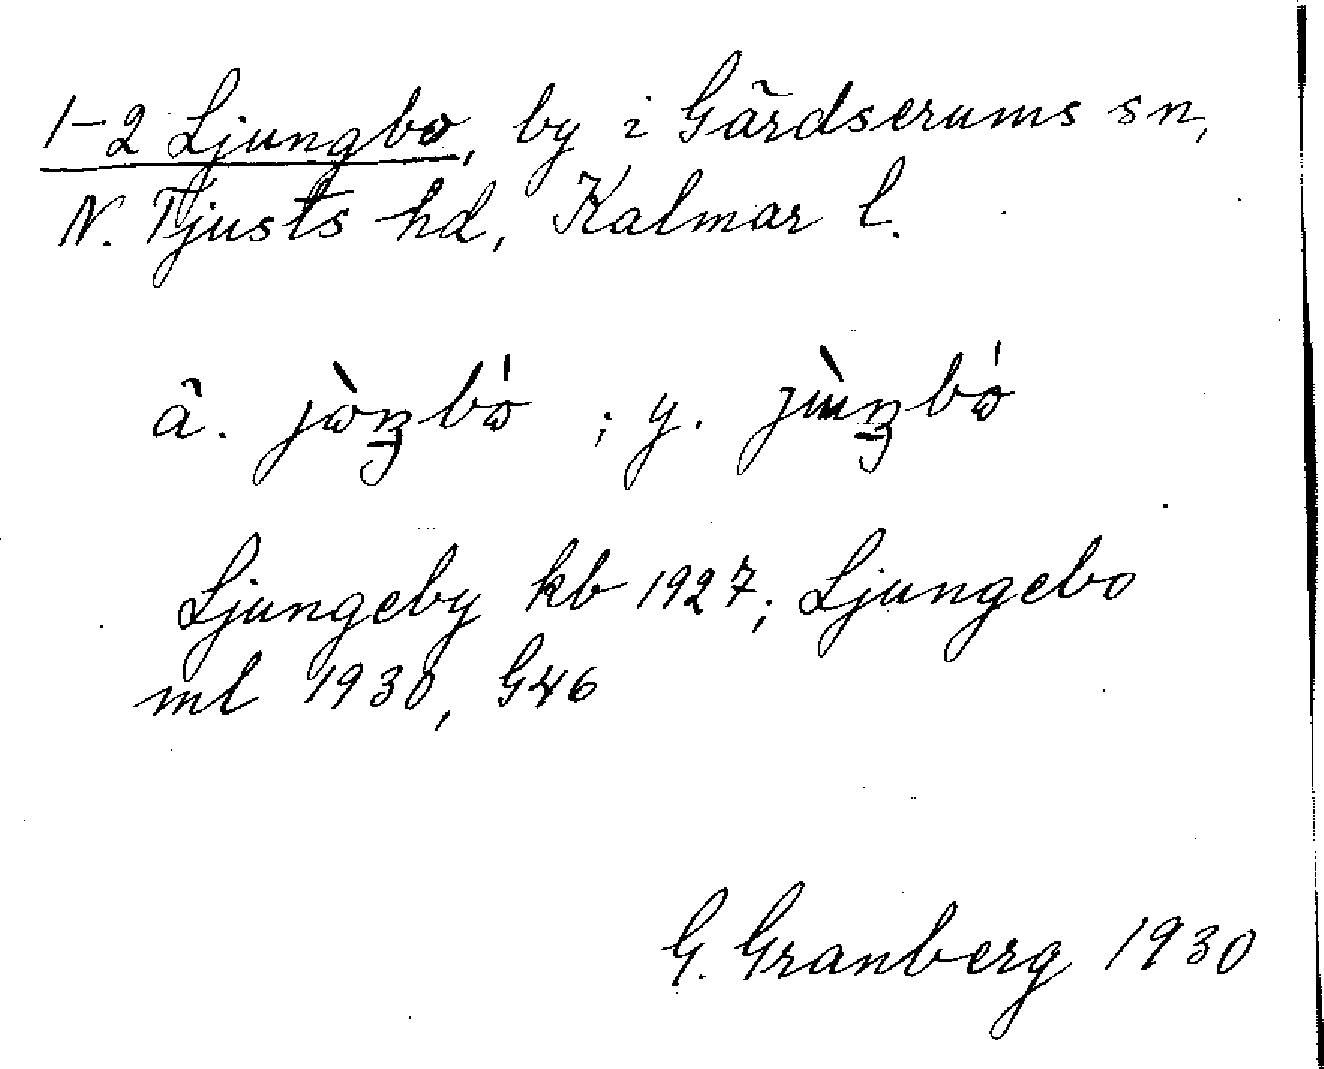 1-2 Ljungbo, by i Gärdserums sn,
N. Tjusts hd, Kalmar l.
ä. ; y.
Ljungeby kb 1927; Ljungebo
ml 1930, G46
G. Granberg 1930